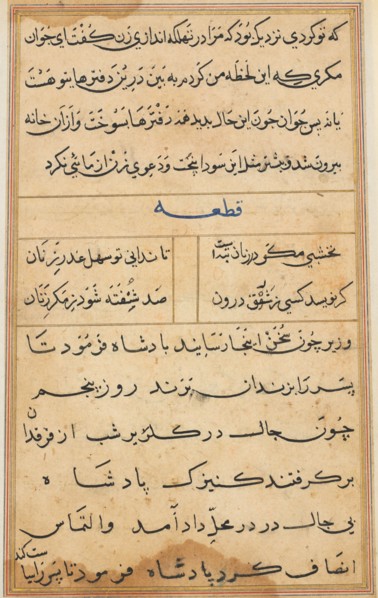 که تو کردی نزدیک بود که مرا در تهلکه اندازی زن گفت ای جوان
مکری که این لحظه من کردم به بین درین دفترها بتو هست
یا نه پس جوان چون این حال بدید همه دفترها بسوخت و از آن خانه
بیرون شد و بیشتر مثل این سودا نپخت و دعوی زن از مائی نکرد
قطعه
نخشبی مکر در زنان
تا ندانی تو سهل غدر زنان
گر نویسد کسی ز درون
صد شیفته شود ز مکر زنان
وزیر چون سخن اینجا رسانید بادشاه فرمود تا
پسر را بزندان بردند روز پنجم
چون جال در کلزیر شب از فرقدان
برکرفتند کنیزک بادشاه
بی جال در در محل داد آمد و التماس
انصاف کرد بادشاه فرمود تا پسر را